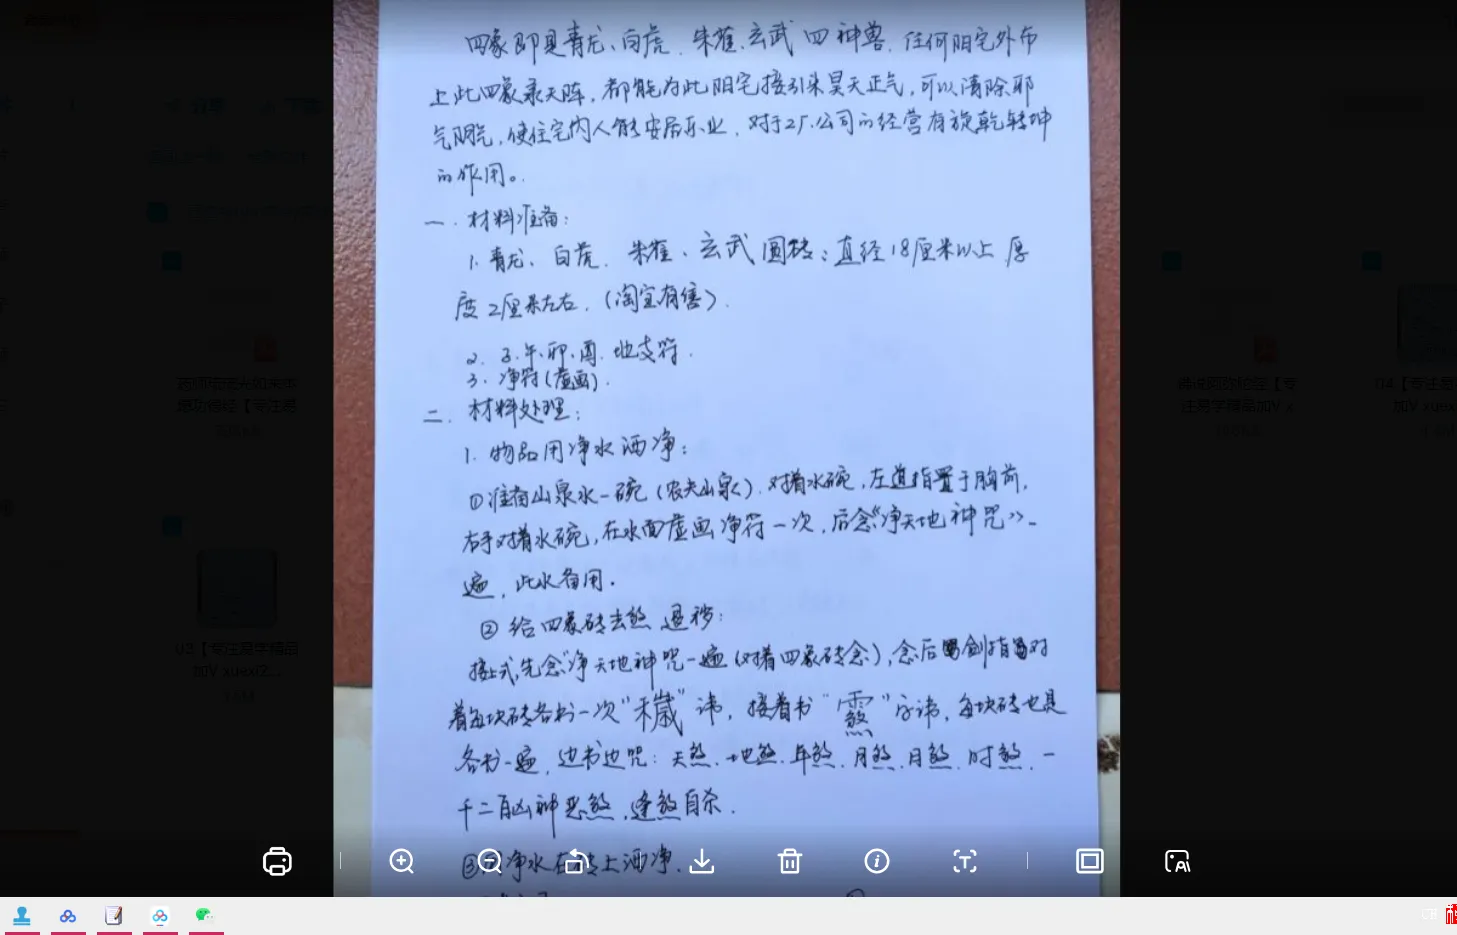 四象即是青龙、白虎、朱雀、玄武四神兽,任何阳宅外布
上此四象承天阵,都能为此阳宅接引来昊天正气,可以清除邪
气阴气,使住宅内人能安居乐业,对于工厂.公司的经营有旋乾转坤
的作用。
一.材料准备:
1.青龙、白虎、朱雀、玄武圆砖:直径18厘米以上厚
度2厘米左右.(淘宝有售).
2.子.午.卯.酉.地支符.
3.净符(虚画).
二.材料处理:
1.物品用净水洒净:
①准备山泉水一碗(农夫山泉).对着水碗,左道指置于胸前,
右手对着水碗,在水面虚画净符一次,后念《净天地神咒》一
遍,此水备用.
②给四象砖去煞退秽:
接上式,先念"净天地神咒一遍(对着四象砖念),念后剑指对
着每块砖各书一次"穢"讳,接着书" "字讳,每块砖也是
各书一遍,边书边咒:天煞.地煞.年煞.月煞.日煞.时煞.一
千二百凶神恶煞,逢煞自杀.
③用净水在砖上洒净.
03【专注易学精品
加V xuexi2...